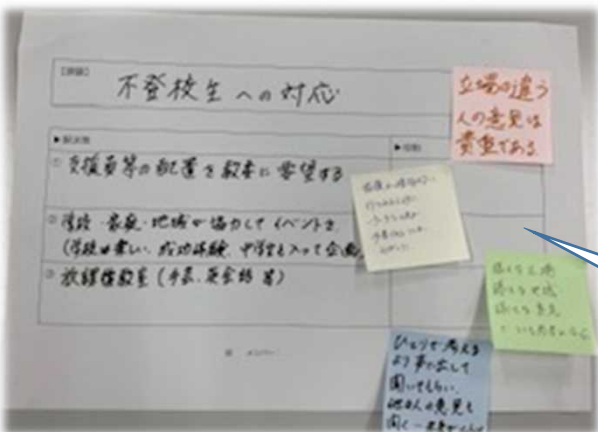 【課題】
不登校生への対応
▶解決策
▶役割
① 支援員等の配置を教委に要望する
② 学校・家庭・地域が協力してイベントを
(学校は楽しい、成功体験、中学生も入って企画
③ 放課後教室(手芸、英会話 等)
メンバー
立場の違う
人の意見は
貴重である
ひとりで考える
より声に出して
聞いてもらい、
他の人の意見も
聞く